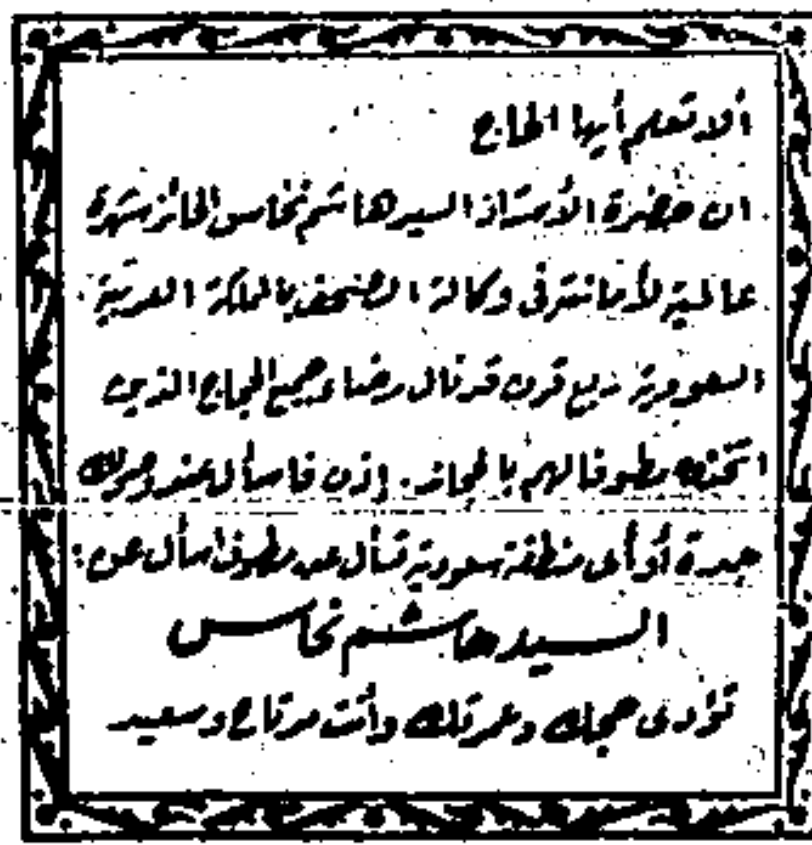 ألا تعلم أيها الحاج
ان حضرة الأستاذ السيد هاشم نحاس الحائز شهرة
عالمية لأمانته فى وكالة الصحف بالمملكة العربية
السعودية ربع قرن قد نال رضاء جميع الحجاج الذين
اتخذوه مطوفا لهم بالحجاز. إذن فاسأل عند وصولك
جدة أو أى منطقة سعودية تسأل عن مطوف اسأل عن:
السيد هاشم نحاس
تؤدى حجك وعمرتك وأنت مرتاح وسعيد